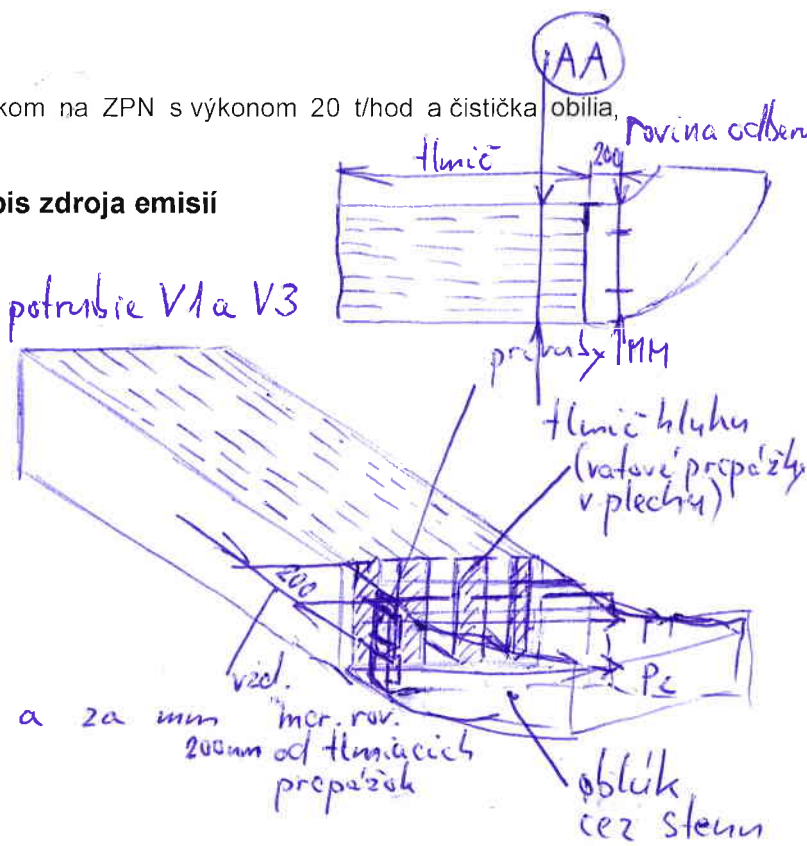 AA
kom na ZPN s výkonom 20 t/hod a čistička obilia,
rovina odberu
tlmič
200
pis zdroja emisií
potrubie V1 a V3
príruby
MM
tlmič hluku
(vatové prepážky
v plechu)
200
P1
P2
vzd.
a za mm mer. rov.
200mm od tlmiacich
prepážok
oblúk
cez stenu